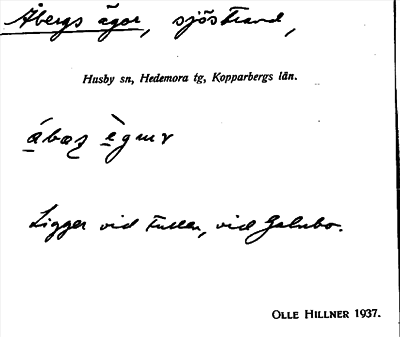 Åbergs ägor, sjöstrand,
Husby sn, Hedemora tg, Kopparbergs län.
Ligger vid Fullen, vid Galnbo.
OLLE HILLNER 1937.